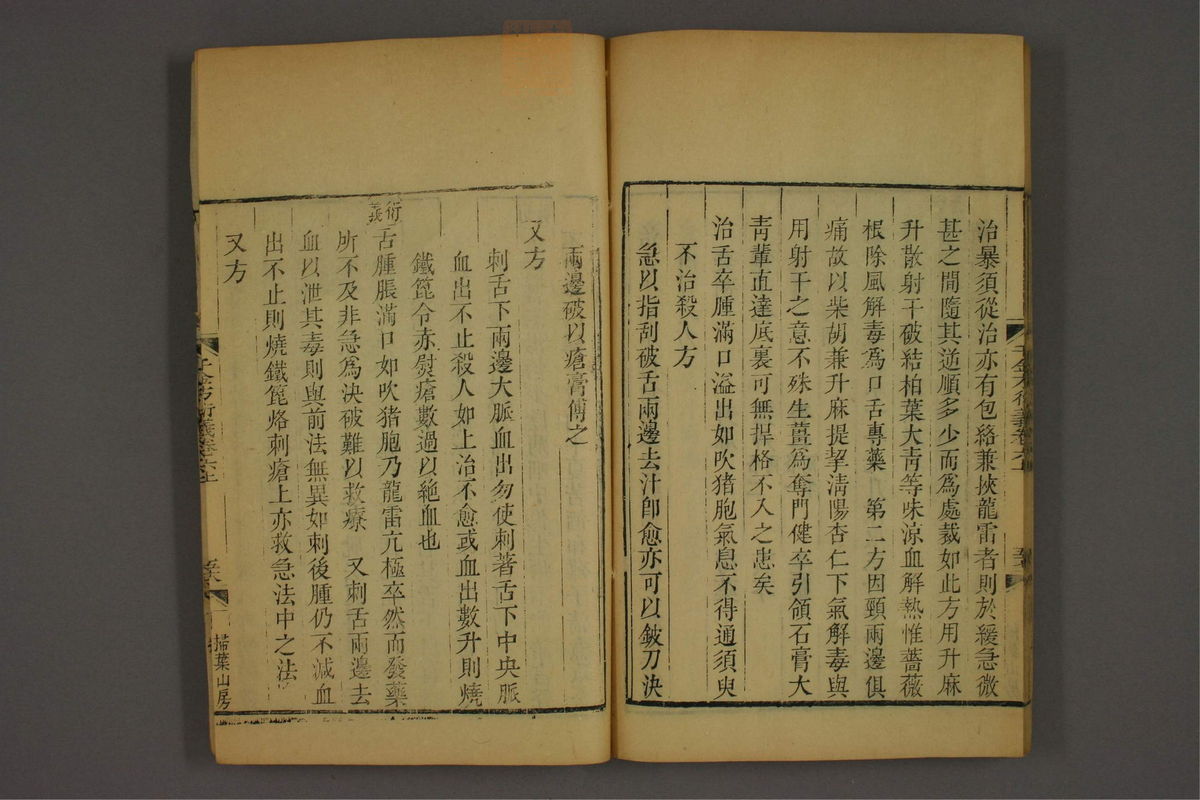 治暴須從治亦有包絡兼挾龍雷者則於緩急微
甚之間隨其逆順多少而爲處裁如此方用升麻
升散射干破結柏葉大靑等味涼血解熱惟薔薇
根除風解毒爲口舌專藥　第二方因頸兩邊俱
痛故以柴胡兼升麻提挈淸陽杏仁下氣解毒與
用射干之意不殊生薑爲奪門健卒引領石膏大
靑輩直達底裏可無捍格不入之患矣
治舌卒腫滿口溢出如吹猪胞氣息不得通須臾
不治殺人方
急以指刮破舌兩邊去汁卽愈亦可以鈹刀決
兩邊破以瘡膏傅之
又方
刺舌下兩邊大脈血出勿使刺著舌下中央脈
血出不止殺人如上治不愈或血出數升則燒
鐵篦令赤熨瘡數過以絶血也
衍義
舌腫脹滿口如吹猪胞乃龍雷亢極卒然而發藥
所不及非急爲決破難以救療　又刺舌兩邊去
血以泄其毒則與前法無異如刺後腫仍不減血
出不止則燒鐵篦烙刺瘡上亦救急法中之法
又方
千金方衍義卷六上
掃葉山房